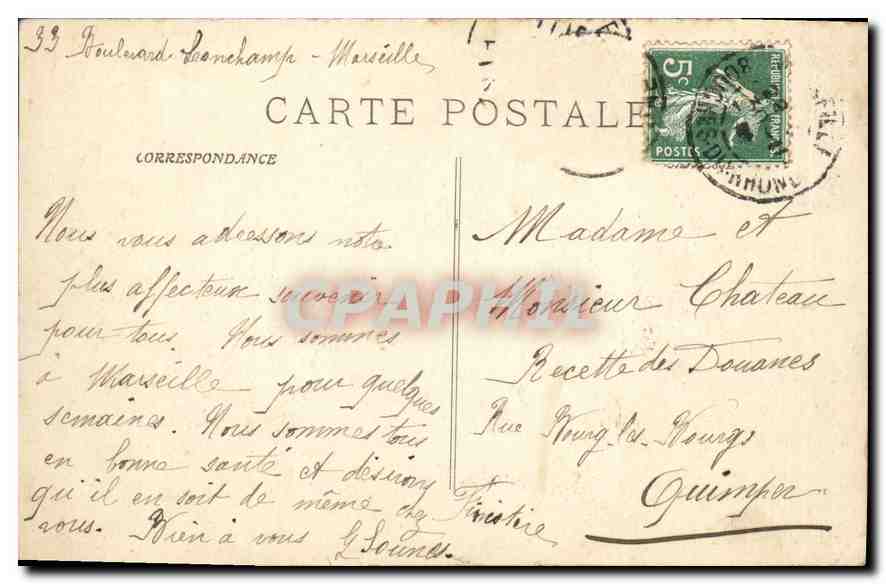 33 Boulevard Lonchamp - Marseille
CARTE POSTALE
CORRESPONDANCE
REPUBLIQUE FRANÇAISE
5c
POSTES
RHONE
Nous vous adressons notre
plus affectueux souvenir
pour tous. Nous sommes
à Marseille pour quelques
semaines. Nous sommes tous
en bonne santé et désirons
qu'il en soit de même chez
vous. Bien à vous G
Madame et
Monsieur Chateau
Recette des Douanes
Rue Bourg-les-Bourgs
Quimper
Finistère
CPAPHIL